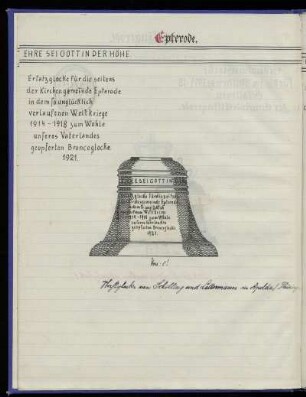 Epterode.
EHRE SEI GOTT IN DER HÖHE.
Ersatzglocke für die seitens
der Kirchengemeinde Epterode
in dem so unglücklich
verlaufenen Weltkriege
1914-1918 zum Wohle
unseres Vaterlandes
geopferten Bronceglocke
1921.
E SEI GOTT IN
1921.
Schilling und Lattermann in Apolda/Thüring